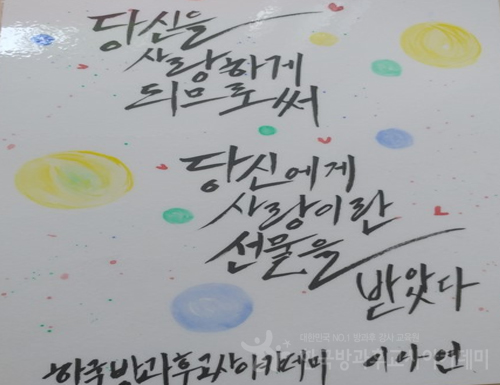 당신을
사랑하게
되므로써
당신에게
사랑이란
선물을
받았다
한국방과후교사아카데미 이아연
대한민국 NO.1 방과후 강사 교육원
한국방과후교사아카데미